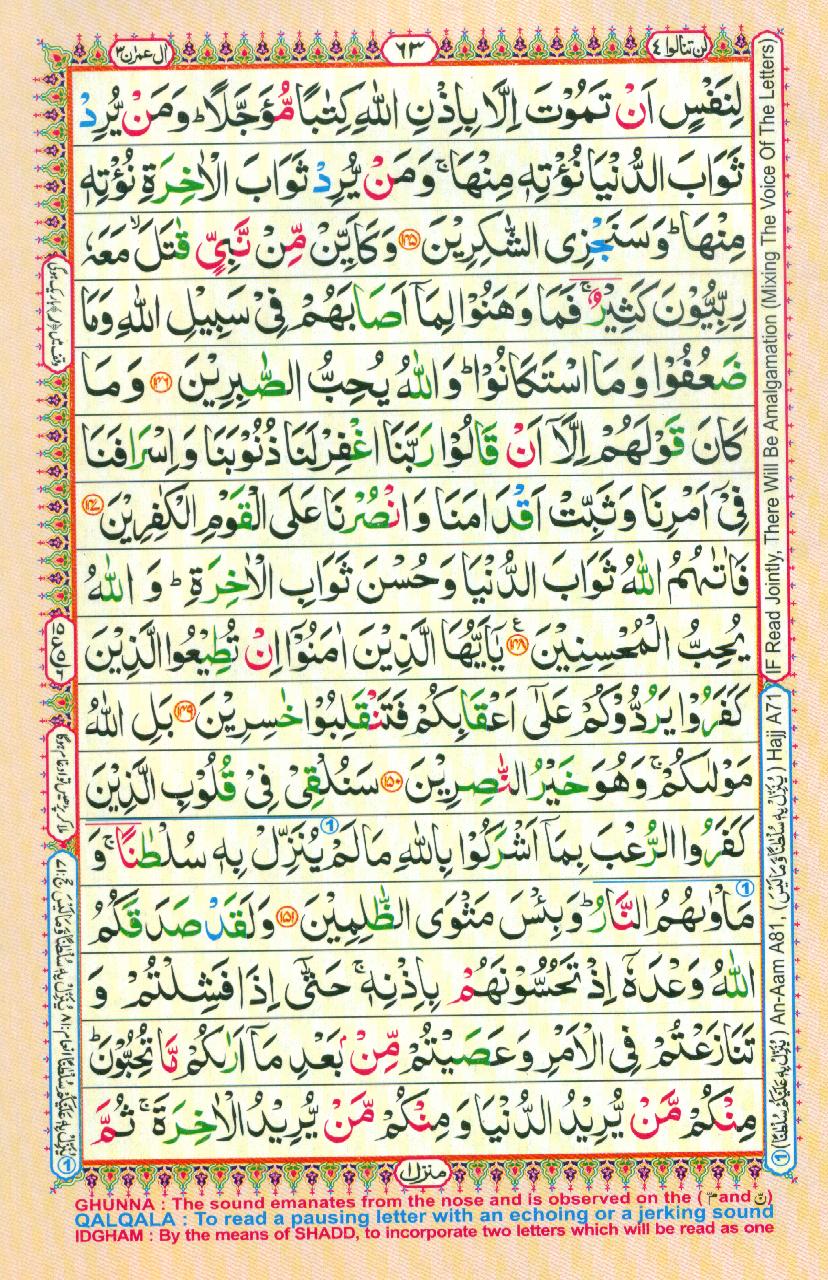 لن تنالوا ٤
٦٣
ال عمرٰن ٣
لِنَفْسٍ اَنْ تَمُوْتَ اِلَّا بِاِذْنِ اللّٰهِ كِتٰبًا مُّؤَجَّلًا ؕ وَمَنْ يُّرِدْ
ثَوَابَ الدُّنْيَا نُؤْتِهٖ مِنْهَا ۚ وَمَنْ يُّرِدْ ثَوَابَ الْاٰخِرَةِ نُؤْتِهٖ
مِنْهَا ؕ وَسَنَجْزِى الشّٰكِرِيْنَ ۝١٤٥ وَكَاَيِّنْ مِّنْ نَّبِىٍّ قٰتَلَ ۙ مَعَهٗ
رِبِّيُّوْنَ كَثِيْرٌ ۚ فَمَا وَهَنُوْا لِمَاۤ اَصَابَهُمْ فِىْ سَبِيْلِ اللّٰهِ وَمَا
ضَعُفُوْا وَمَا اسْتَكَانُوْا ؕ وَاللّٰهُ يُحِبُّ الصّٰبِرِيْنَ ۝١٤٦ وَمَا
كَانَ قَوْلَهُمْ اِلَّاۤ اَنْ قَالُوْا رَبَّنَا اغْفِرْ لَنَا ذُنُوْبَنَا وَاِسْرَافَنَا
فِىْۤ اَمْرِنَا وَثَبِّتْ اَقْدَامَنَا وَانْصُرْنَا عَلَى الْقَوْمِ الْكٰفِرِيْنَ ۝١٤٧
فَاٰتٰٮهُمُ اللّٰهُ ثَوَابَ الدُّنْيَا وَحُسْنَ ثَوَابِ الْاٰخِرَةِ ؕ وَاللّٰهُ
يُحِبُّ الْمُحْسِنِيْنَ ۝١٤٨ ع يٰۤاَيُّهَا الَّذِيْنَ اٰمَنُوْۤا اِنْ تُطِيْعُوا الَّذِيْنَ
كَفَرُوْا يَرُدُّوْكُمْ عَلٰٓى اَعْقَابِكُمْ فَتَنْقَلِبُوْا خٰسِرِيْنَ ۝١٤٩ بَلِ اللّٰهُ
مَوْلٰٮكُمْ ۚ وَهُوَ خَيْرُ النّٰصِرِيْنَ ۝١٥٠ سَنُلْقِىْ فِىْ قُلُوْبِ الَّذِيْنَ
كَفَرُوا الرُّعْبَ بِمَاۤ اَشْرَكُوْا بِاللّٰهِ مَا لَمْ يُنَزِّلْ بِهٖ سُلْطٰنًا ۚ وَ
مَاْوٰٮهُمُ النَّارُ ؕ وَبِئْسَ مَثْوَى الظّٰلِمِيْنَ ۝١٥١ وَلَقَدْ صَدَقَكُمُ
اللّٰهُ وَعْدَهٗۤ اِذْ تَحُسُّوْنَهُمْ بِاِذْنِهٖ ۚ حَتّٰۤى اِذَا فَشِلْتُمْ وَ
تَنَازَعْتُمْ فِى الْاَمْرِ وَعَصَيْتُمْ مِّنْۢ بَعْدِ مَاۤ اَرٰٮكُمْ مَّا تُحِبُّوْنَ ؕ
مِنْكُمْ مَّنْ يُّرِيْدُ الدُّنْيَا وَمِنْكُمْ مَّنْ يُّرِيْدُ الْاٰخِرَةَ ۚ ثُمَّ
منزل ١
IF Read Jointly, There Will Be Amalgamation (Mixing The Voice Of The Letters)
① (يُنَزِّلْ بِهٖ عَلَيْكُمْ سُلْطٰنًا) An-Aam A81, (يُنَزِّلْ بِهٖ سُلْطٰنًا وَّمَا لَيْسَ) Hajj A71
GHUNNA : The sound emanates from the nose and is observed on the (مّ and نّ)
QALQALA : To read a pausing letter with an echoing or a jerking sound
IDGHAM : By the means of SHADD, to incorporate two letters which will be read as one